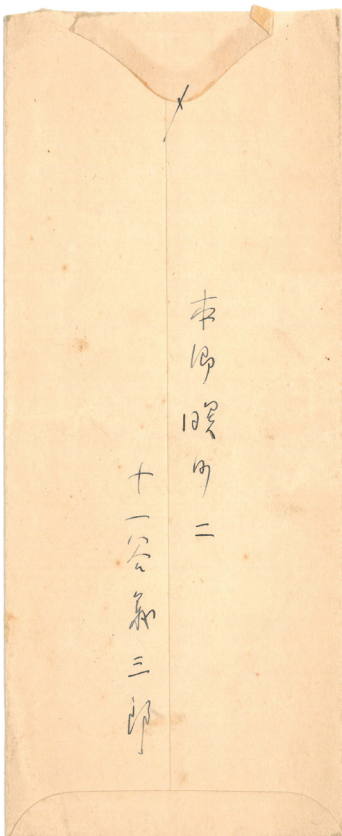 〆
本郷曙町二
十一谷義三郎